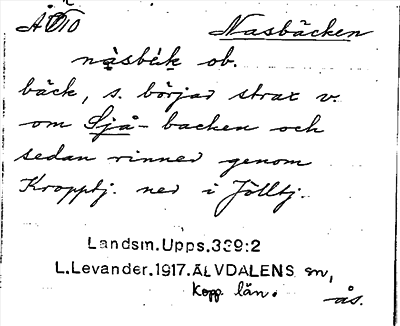 Nasbäcken
nàsbék ob.
bäck, s. börjar strax v.
om Sjå-backen och
sedan rinner genom
Kropptj. ned i Jölltj.
Landsm.Upps.339:2
L.Levander.1917.ÄLVDALENS sn,
Kopp. län.
ås.